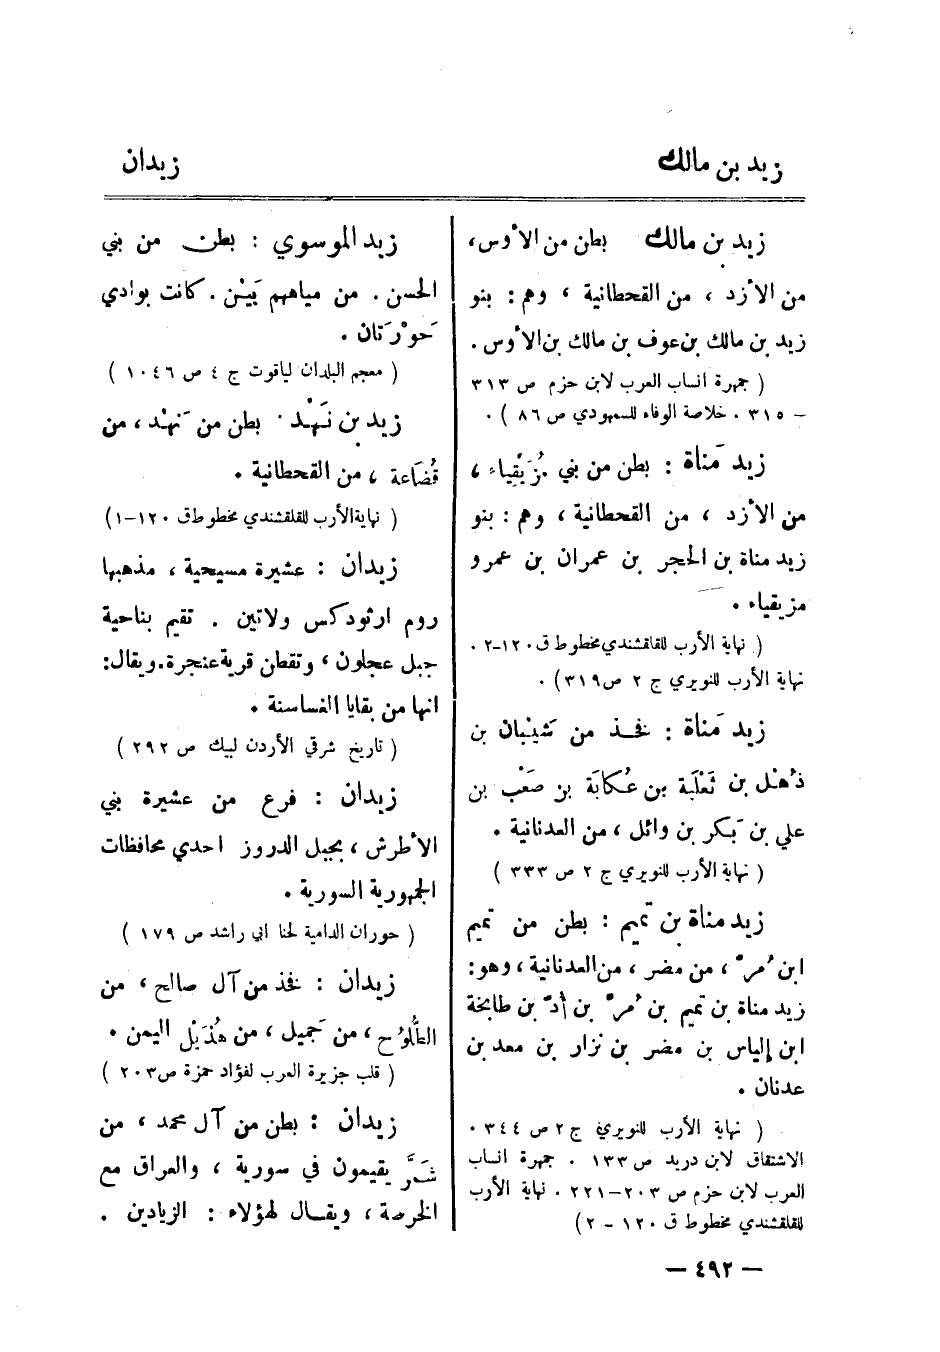 زيد بن مالك
زيدان
زيد بن مالك بطن من الأوس،
من الأزد ، من القحطانية ، وهم : بنو
زيد بن مالك بن عوف بن مالك بن الأوس .
( جمهرة انساب العرب لابن حزم ص ٣١٣
– ٣١٥ . خلاصة الوفاء للسمهودي ص ٨٦ ) .
زيد مَناة : بطن من بني مُزَيْقِياء ،
من الأزد ، من القحطانية ، وهم : بنو
زيد مناة بن الحجر بن عمران بن عمرو
مزيقياء .
( نهاية الأرب للقلقشندي مخطوط ق ١٢٠–٢ .
نهاية الأرب للنويري ج ٢ ص ٣١٩) .
زيد مَناة : فخذ من شَيْبان بن
ذُهْل بن ثَعْلَبة بن عُكابَة بن صَعْب بن
علي بن بَكر بن وائل ، من العدنانية .
( نهاية الأرب للنويري ج ٢ ص ٣٣٣ )
زيد مناة بن تميم : بطن من تميم
ابن مُرّ ، من مضر ، من العدنانية ، وهو:
زيد مناة بن تميم بن مُرّ بن أُدّ بن طابخة
ابن إلياس بن مضر بن نزار بن معد بن
عدنان .
( نهاية الأرب للنويري ج ٢ ص ٣٤٤ .
الاشتقاق لابن دريد ص ١٣٣ . جمهرة انساب
العرب لابن حزم ص ٢٠٣–٢٢١ . نهاية الأرب
للقلقشندي مخطوط ق ١٢٠ – ٢)
زيد الموسوي : بطن من بني
الحسن . من مياههم يَيْن . كانت بوادي
حَوْرَتان .
( معجم البلدان لياقوت ج ٤ ص ١٠٤٦ )
زيد بن نَهْد : بطن من نَهْد ، من
قُضَاعة ، من القحطانية .
( نهاية الأرب للقلقشندي مخطوط ق ١٢٠–١)
زيدان : عشيرة مسيحية ، مذهبها
روم ارثودكس ولاتين . تقيم بناحية
جبل عجلون ، وتقطن قرية عنجرة . ويقال:
انها من بقايا الغساسنة .
( تاريخ شرقي الأردن لبيك ص ٢٩٢ )
زيدان : فرع من عشيرة بني
الأطرش ، بجبل الدروز احدي محافظات
الجمهورية السورية .
( حوران الدامية لحنا ابي راشد ص ١٧٩ )
زيدان : فخذ من آل صالح ، من
الطُّلُوح ، من جَميل ، من هُذَيْل اليمن .
( قلب جزيرة العرب لفؤاد حمزة ص ٢٠٣ )
زيدان : بطن من آل محمد ، من
شَمَّر يقيمون في سورية ، والعراق مع
الخرصة ، ويقال لهؤلاء : الزيادين .
– ٤٩٢ –